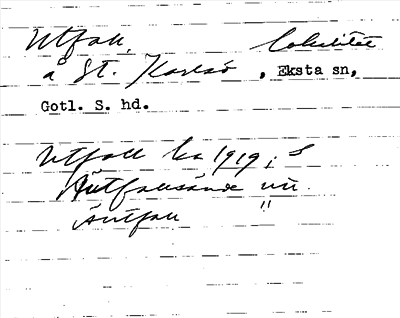 Utfall, lokalitet
å St. Karlsö, Eksta sn,
Gotl. S. hd.
Utfall ka 1919; s
Äutfallsände
Äutfall "